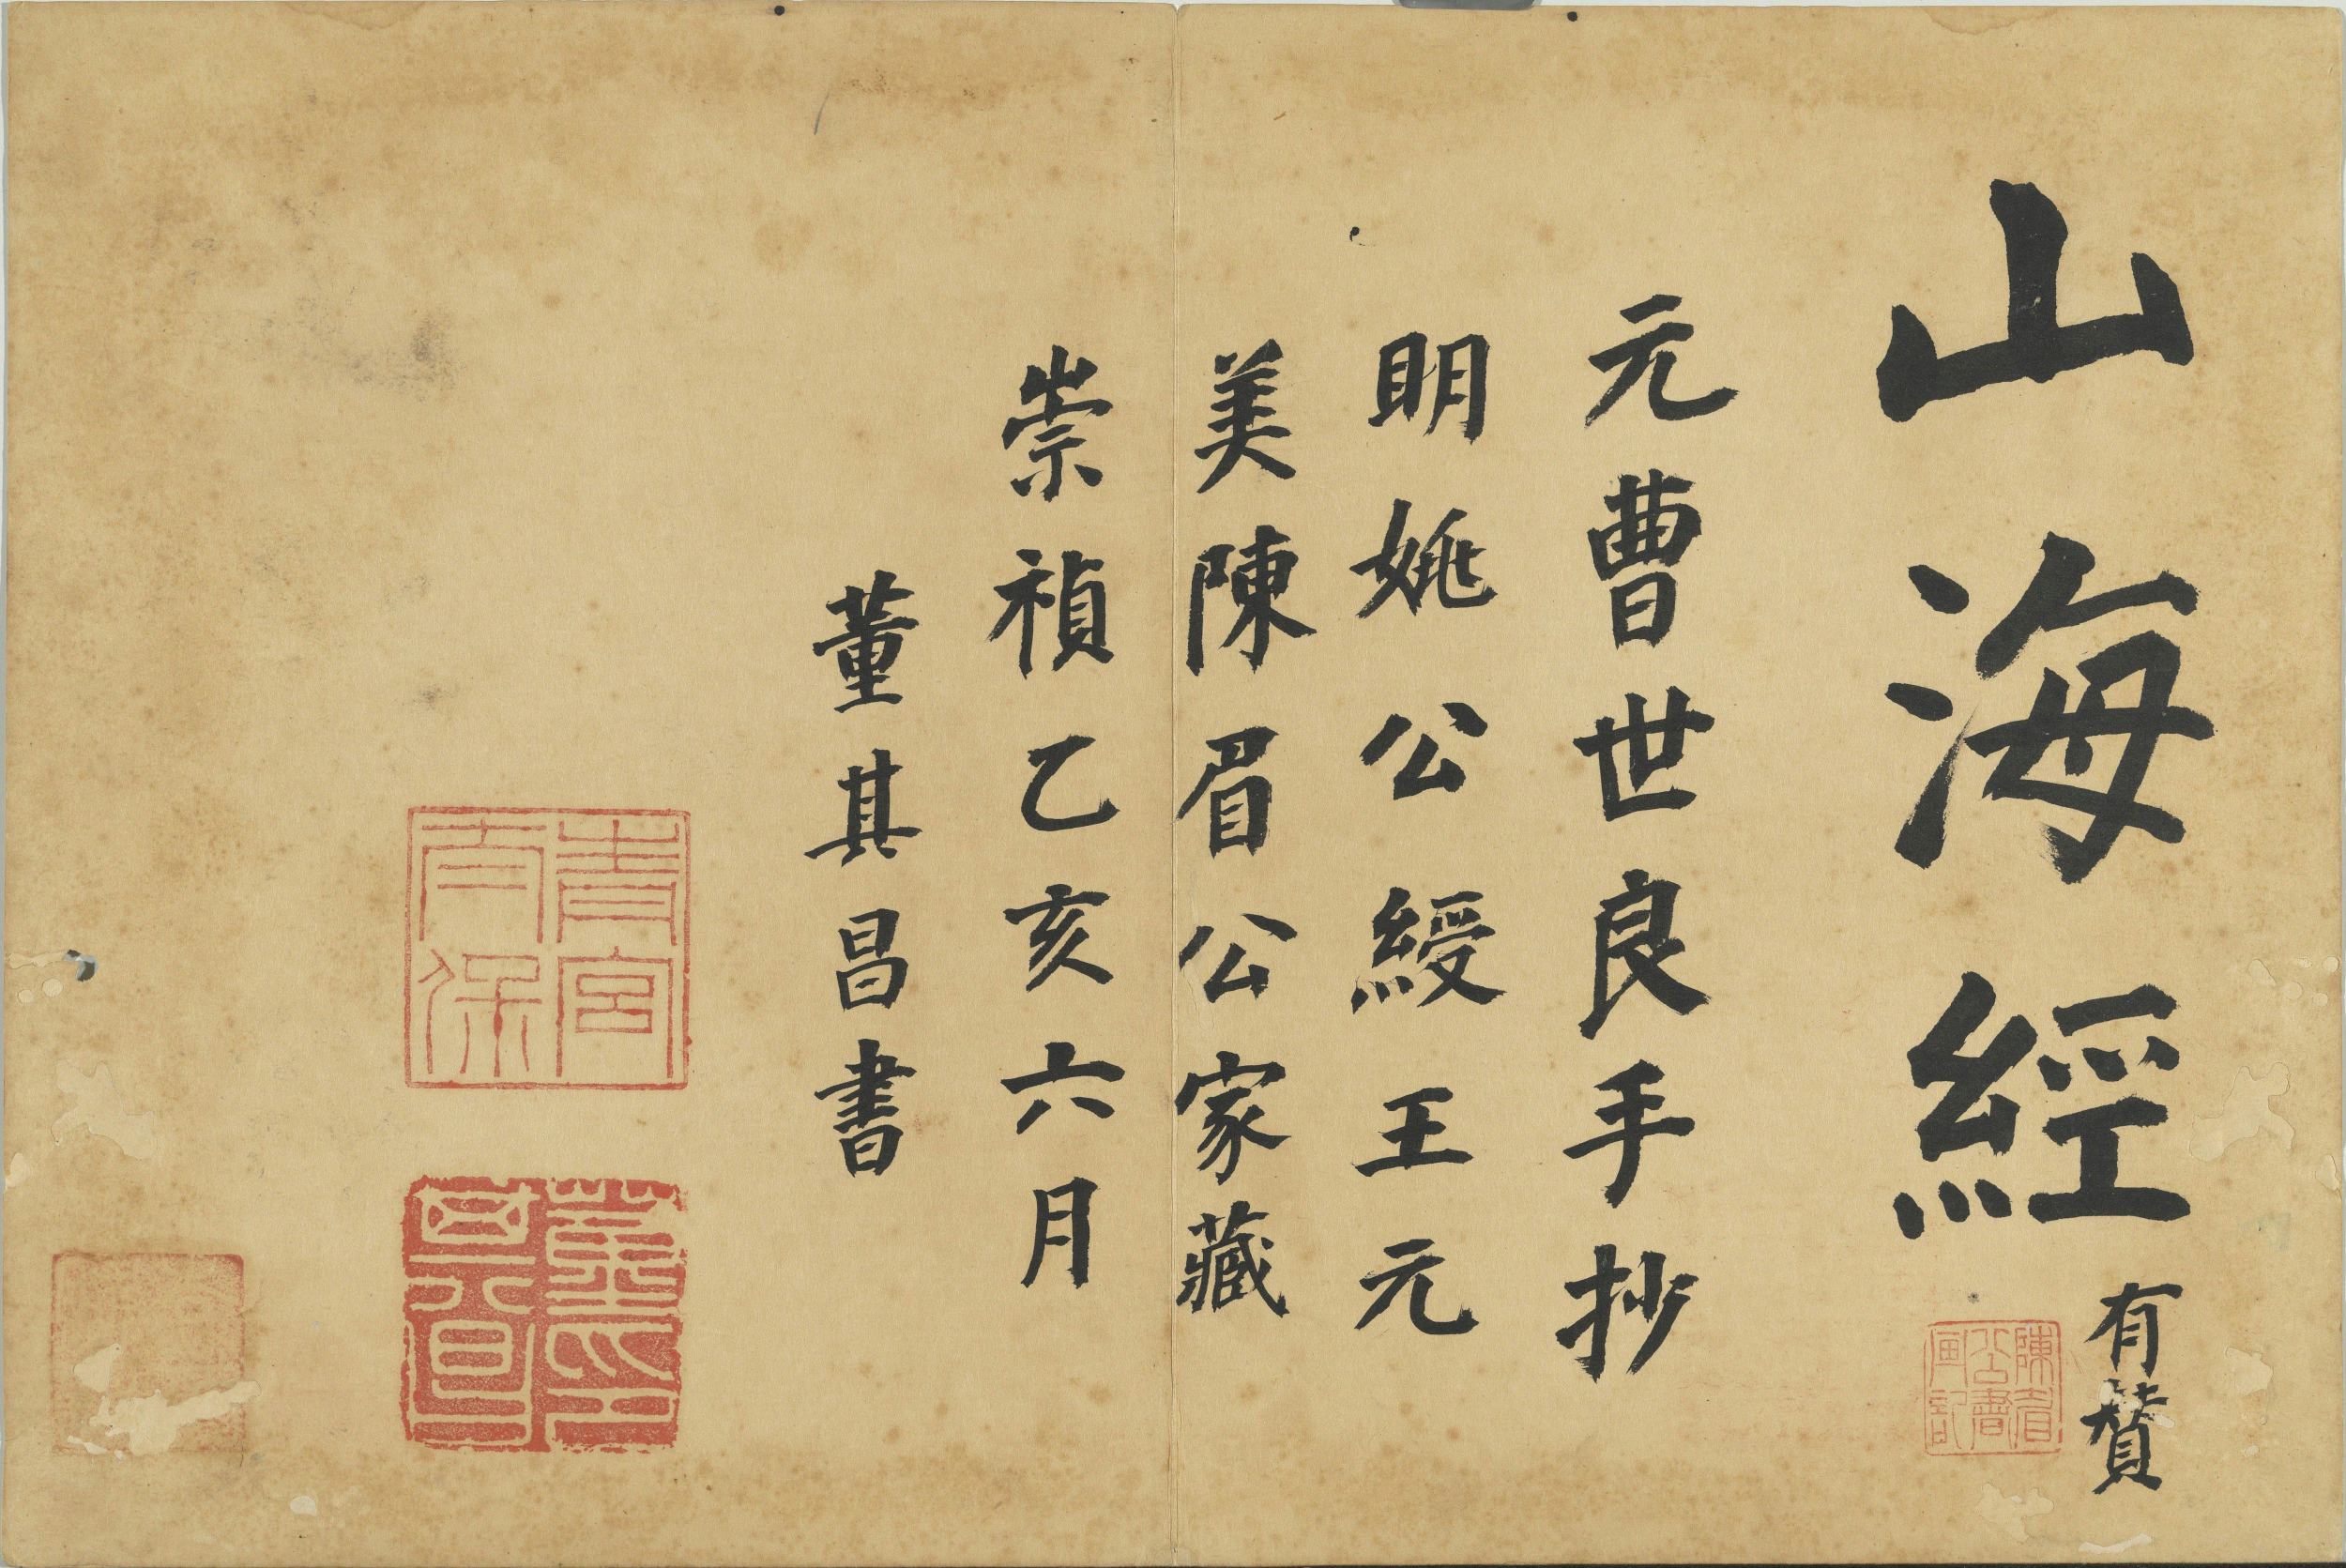 山海經
有賛
陳眉公書画記
元曹世良手抄
眀姚公綬王元
美陳眉公家藏
崇禎乙亥六月
董其昌書
青宮太保